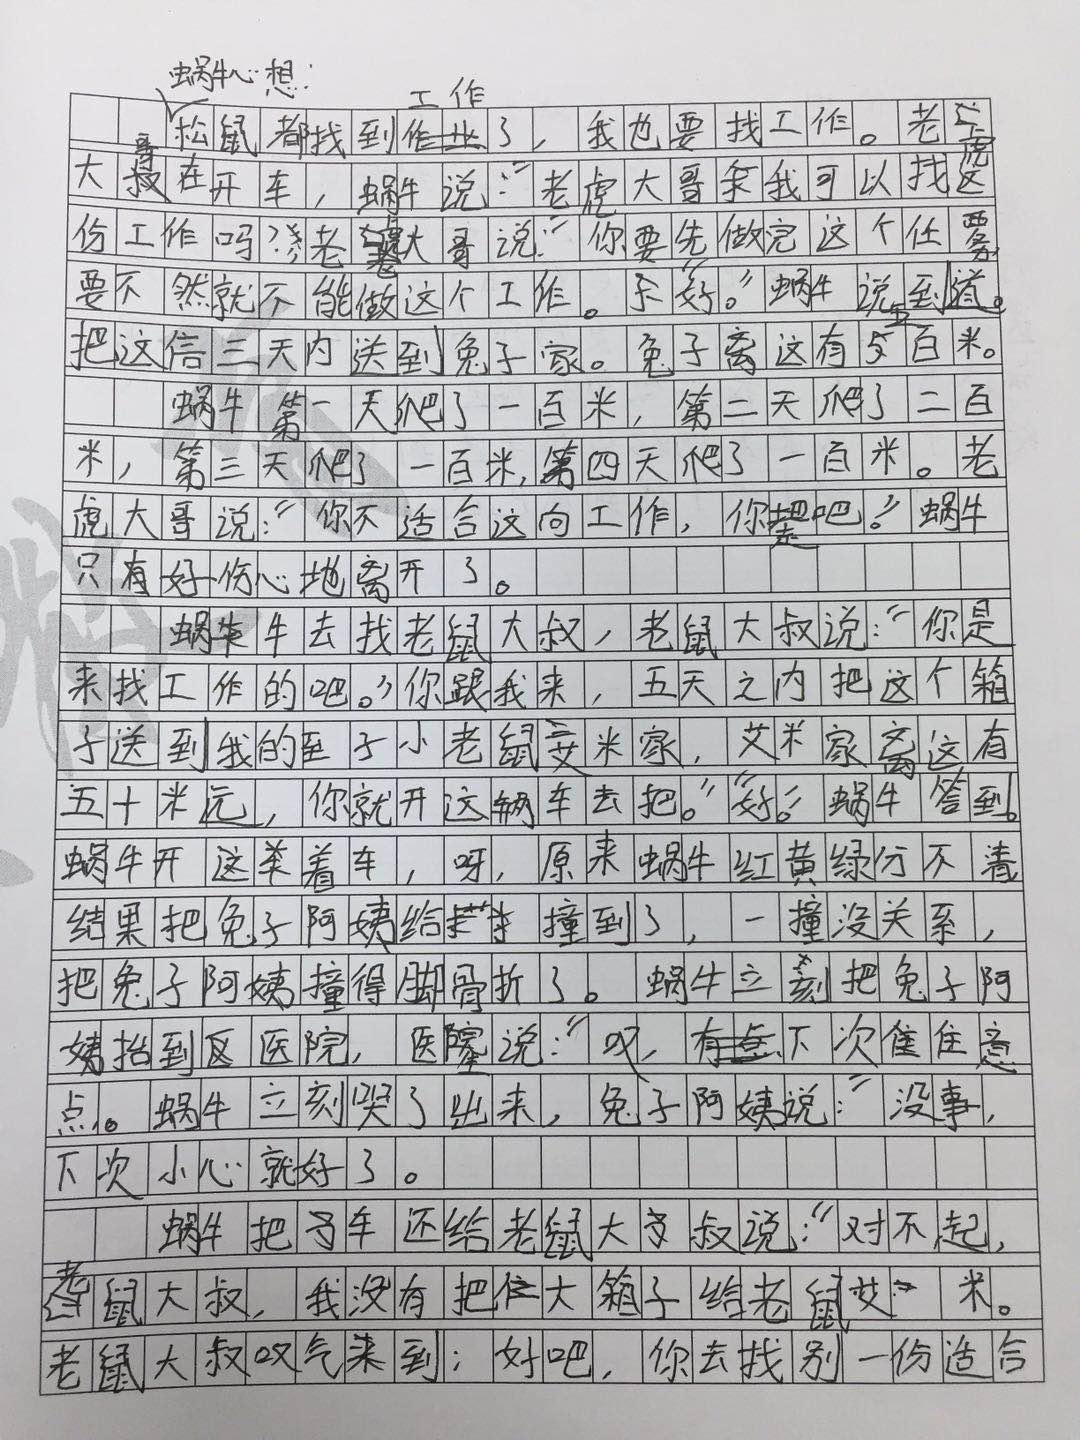 蜗牛心想：
工作
松鼠都找到了，我也要找工作。老虎
大哥在开车，蜗牛说：“老虎大哥我可以找这
份工作吗？”老虎大哥说：“你要先做完这个任务
要不然就不能做这个工作。“好。”蜗牛说到道。
把这信三天内送到兔子家。兔子离这有五百米。
蜗牛第一天爬了一百米，第二天爬了二百
米，第三天爬了一百米，第四天爬了一百米。老
虎大哥说：“你不适合这向工作，你走吧！”蜗牛
只有好伤心地离开了。
蜗牛牛去找老鼠大叔，老鼠大叔说：“你是
来找工作的吧。”你跟我来，五天之内把这个箱
子送到我的至子小老鼠艾米家，艾米家离这有
五十米远，你就开这辆车去把。”“好！”蜗牛答到。
蜗牛开这着车，呀，原来蜗牛红黄绿分不清
结果把兔子阿姨给撞到了，一撞没关系，
把兔子阿姨撞得脚骨折了。蜗牛立刻把兔子阿
姨抬到医院，医院说：“叹，下次住意
点。蜗牛立刻哭了出来，兔子阿姨说：“没事，
下次小心就好了。
蜗牛把车还给老鼠大叔说：“对不起，
老鼠大叔，我没有把大箱子给老鼠艾米。
老鼠大叔叹气来到：好吧，你去找别一份适合